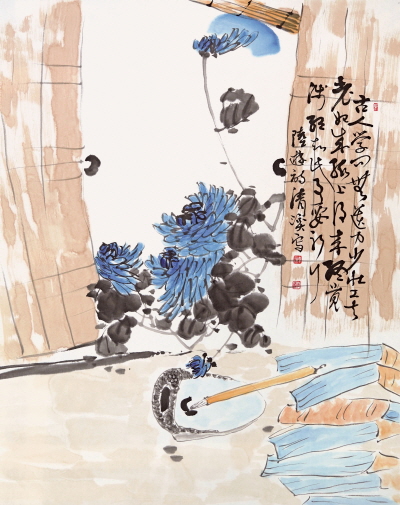 古人学问無遗力少壮工夫
老始成纸上得来终觉
浅绝知此事要躬行
陸游詩清溪写